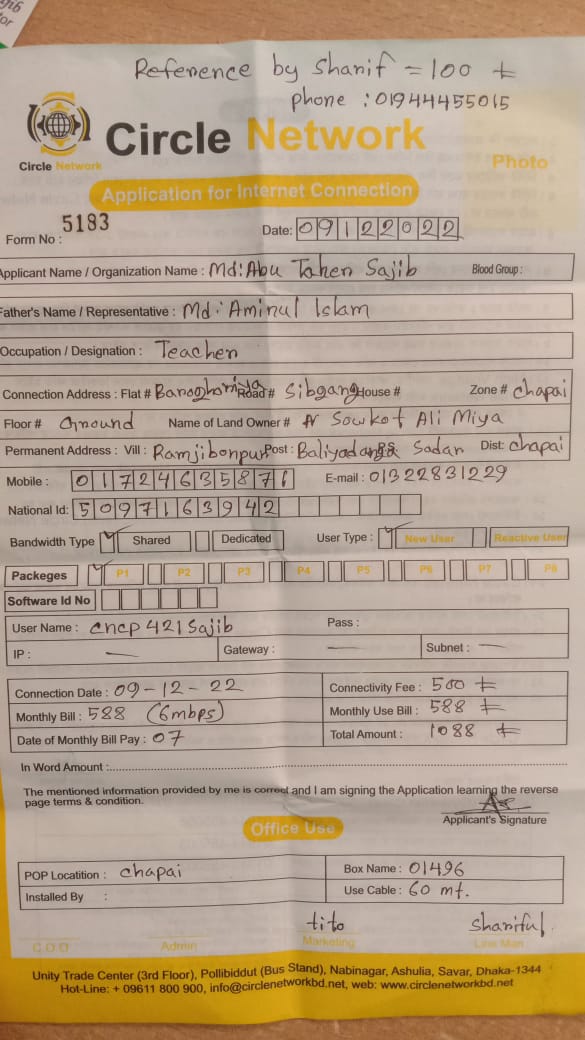 Reference by Sharif = 100 ₺
phone : 01944455015
Circle Network
Circle Network
Photo
Application for Internet Connection
Form No : 5183
Date: 09122022
Applicant Name / Organization Name : Md: Abu Taher Sajib Blood Group :
Father's Name / Representative : Md: Aminul Islam
Occupation / Designation : Teacher
Connection Address : Flat # Road # Sibganj House # Zone # Chapai
Floor # Ground Name of Land Owner # Sowkot Ali Miya
Permanent Address : Vill : Ramjibonpur Post : Baliyadanga Sadar Dist: Chapai
Mobile : 01724635871 E-mail : 01322831229
National Id: 5097163942
Bandwidth Type Shared Dedicated User Type : New User Reactive User
Packeges P1 P2 P3 P4 P5 P6 P7 P8
Software Id No
User Name : cncp421Sajib Pass :
IP : — Gateway : — Subnet : —
Connection Date : 09-12-22 Connectivity Fee : 500 ₺
Monthly Bill : 588 (6mbps) Monthly Use Bill : 588 ₺
Date of Monthly Bill Pay : 07 Total Amount : 1088 ₺
In Word Amount :
The mentioned information provided by me is correct and I am signing the Application learning the reverse
page terms & condition.
Applicant's Signature
Office Use
POP Locatition : Chapai Box Name : 01496
Installed By : Use Cable : 60 mt.
tito Shariful
C.O.O Admin Marketing Line Man
Unity Trade Center (3rd Floor), Pollibiddut (Bus Stand), Nabinagar, Ashulia, Savar, Dhaka-1344
Hot-Line: + 09611 800 900, info@circlenetworkbd.net, web: www.circlenetworkbd.net